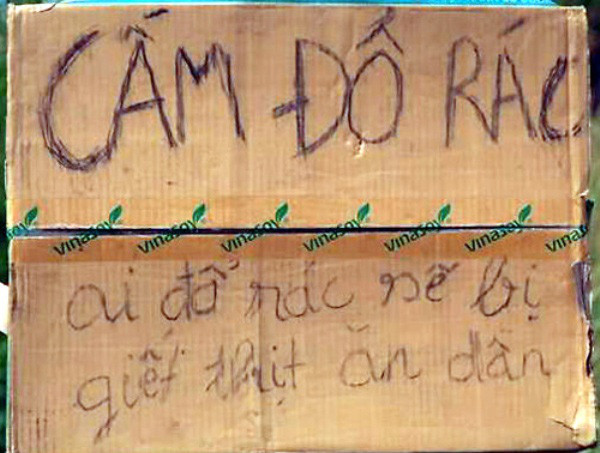 CẤM ĐỔ RÁC
Vinasoy Vinasoy Vinasoy Vinasoy Vinasoy Vinasoy
ai đổ rác sẽ bị
giết thịt ăn dần